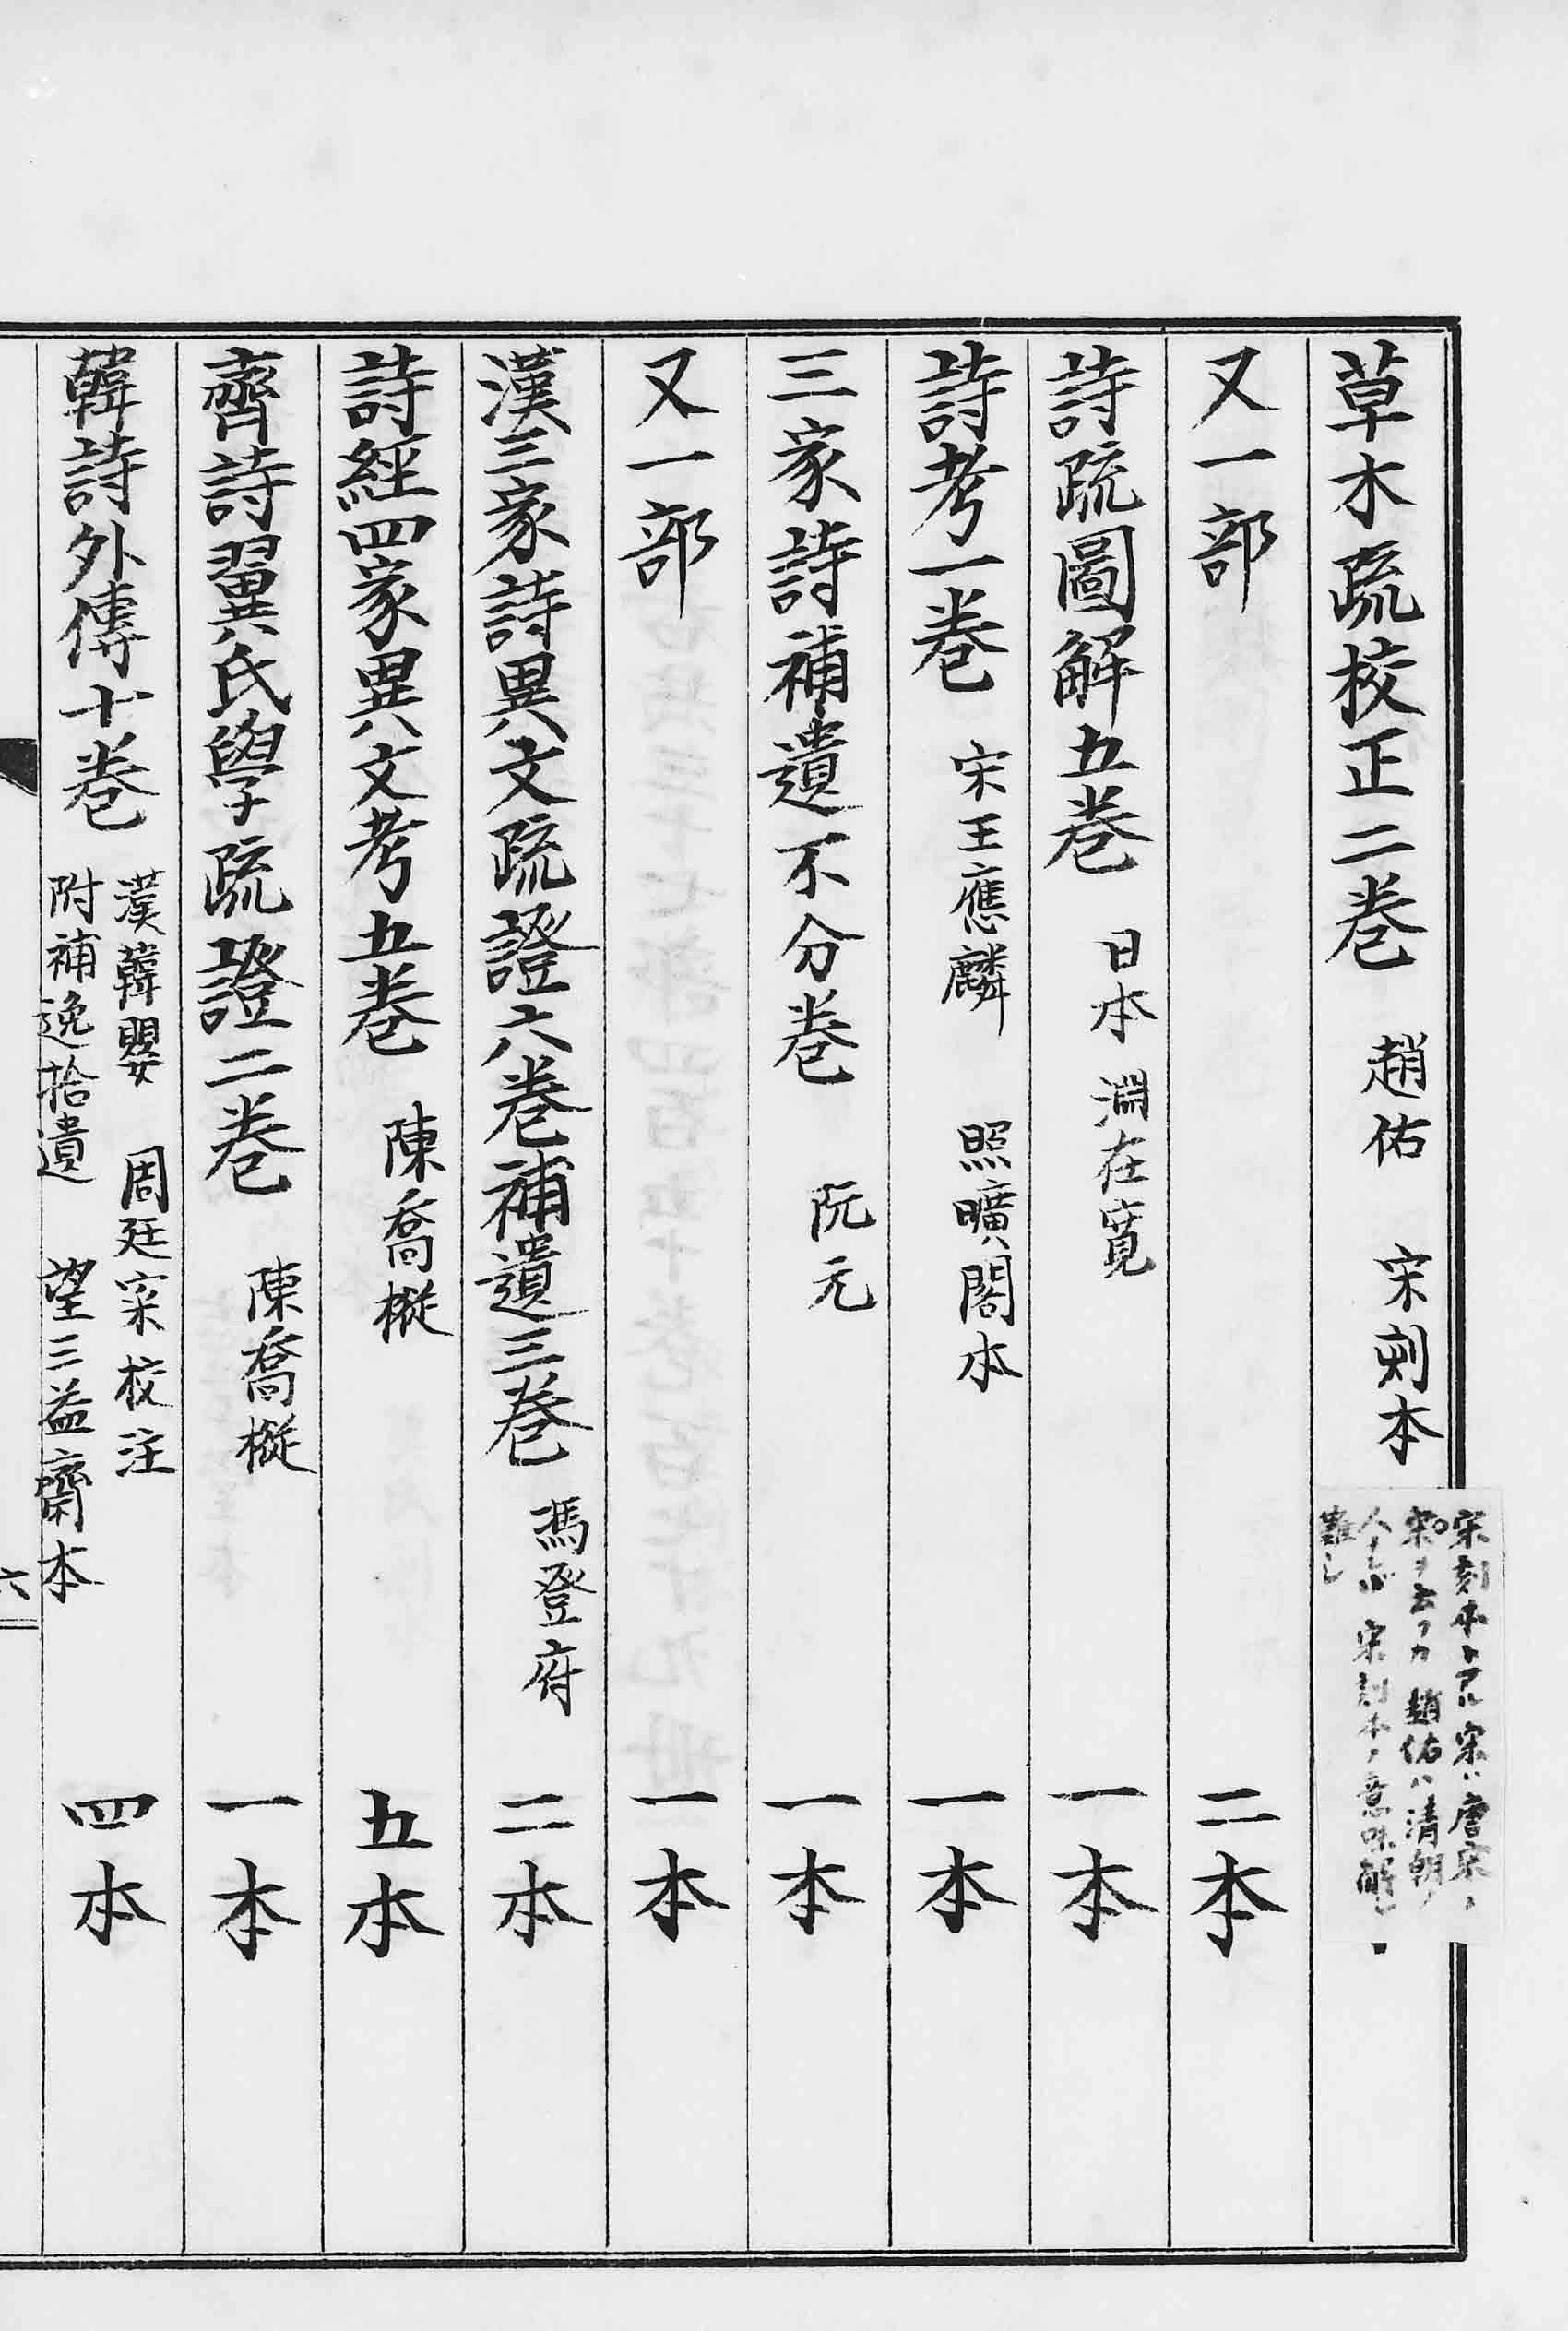 草木疏校正二卷　趙佑　宋刻本
宋刻本トアル宋ハ唐宋ノ
宋ヲ云フカ 趙佑ハ清朝ノ
人ナル 宋刻本ノ意味解シ
難し
又一部　二本
詩疏圖解五卷　日本　淵在寬　一本
詩考一卷　宋王應麟　照曠閣本　一本
三家詩補遺不分卷　阮元　一本
又一部　一本
漢三家詩異文疏證六卷補遺三卷　馮登府　二本
詩經四家異文考五卷　陳喬樅　五本
齊詩翼氏學疏證二卷　陳喬樅　一本
韓詩外傳十卷　四本
漢韓嬰　周廷寀校注
附補逸拾遺　望三益齋本
六